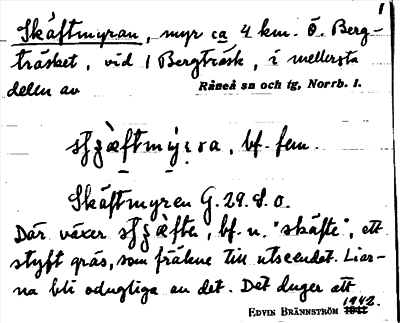 1
Skäftmyran, myr ca 4 km. Ö. Berg-
träsket, vid 1 Bergträsk, i mellersta
delen av Råneå sn och tg, Norrb. l.
bf. fem.
Skäftmyren G. 29. 8. o.
Där växer bf. n. "skäfte", ett
styft gräs, som fräkne till utseendet. Liar-
na bli odugliga av det. Det duger att
EDVIN BRÄNNSTRÖM 1942.